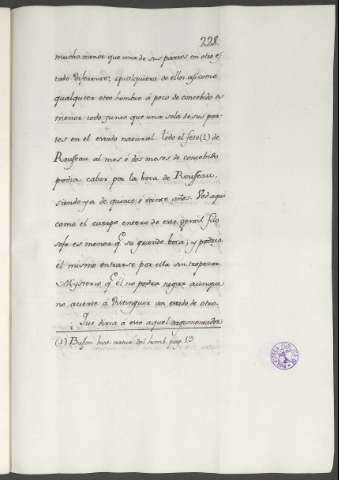 228.
mucho menor que una de sus partes en otro es
tado diferente; qualquiera de ellos, asi como
qualquier otro hombre á poco de concebido es
menor todo junto que una sola de sus par
tes en el estado natural. Todo el feto (1) de
Rousseau al mes ó dos meses de concebido
podia caber por la boca de Rousseau,
siendo ya de quince ó veinte años. Ved aqui
como el cuerpo entero de este gentil filo
sofo es menor q.e su grande boca; y podria
él mismo entrarse por ella sin tropezar.
Mysterio q.e él no podrá negar aunque
no acierte á distinguir un estado de otro.
¿Que diria á esto aquel argumentador
(1) Bufon hist. natur. del homb. pag. 13